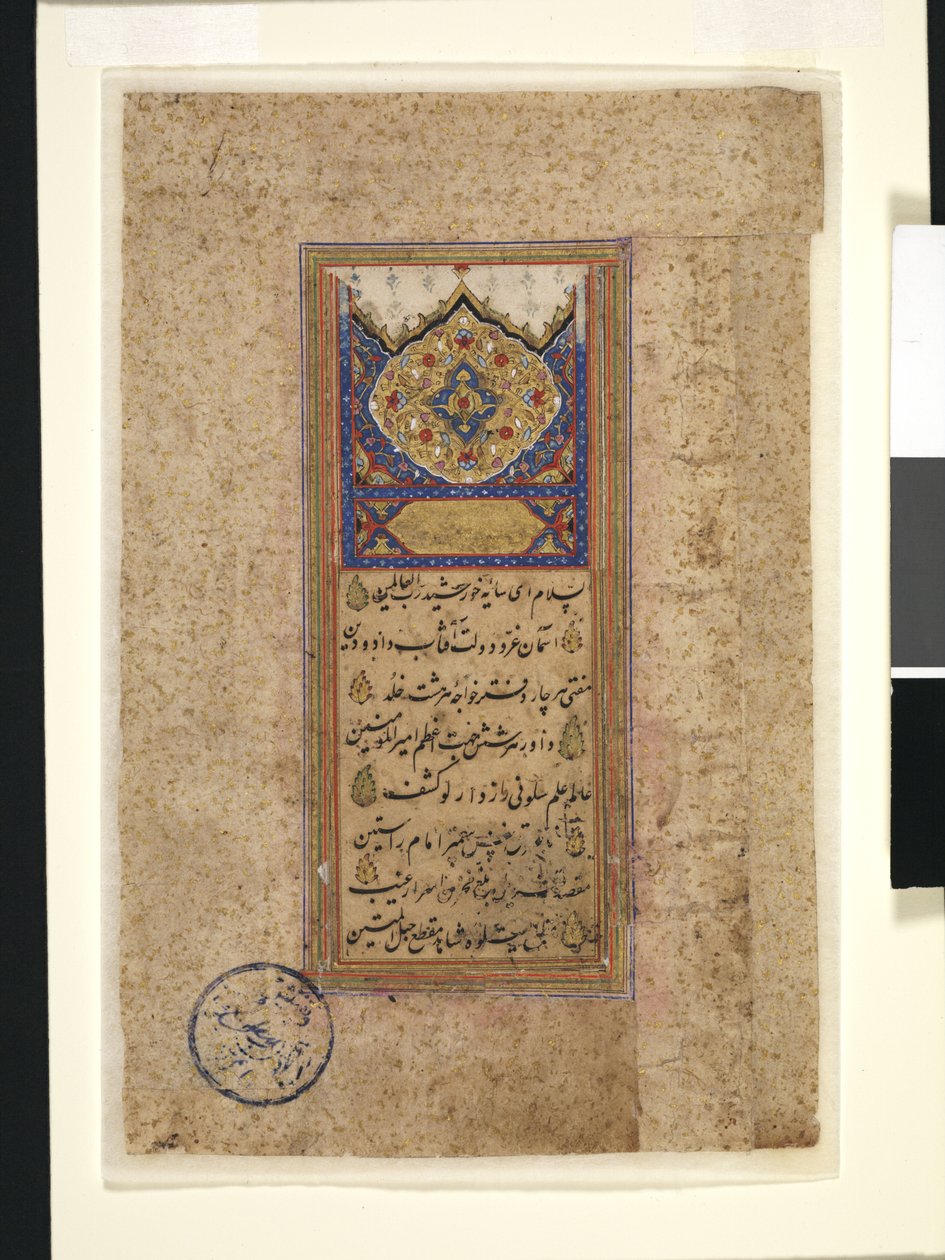 السّلام ای سایهٔ خورشید رب العالمین
اسمان عزّ و دولت آفتاب داد و دین
مفتی هر چار دفتر خواجهٔ هر هشت خلد
داور هر شش جهت اعظم امیر المومنین
عالم علم سلونی رازدار لو کشف
نفس پیغمبر امام راستین
مقصد بلغ اسرار غیب
یتلوه شاهد مقطع حبل المتین